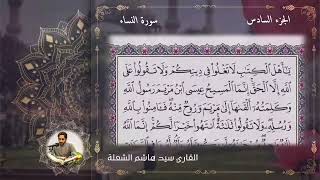 الجزء السادس
سورة النساء
يَٰٓأَهْلَ ٱلْكِتَٰبِ لَا تَغْلُوا۟ فِى دِينِكُمْ وَلَا تَقُولُوا۟ عَلَى
ٱللَّهِ إِلَّا ٱلْحَقَّ إِنَّمَا ٱلْمَسِيحُ عِيسَى ٱبْنُ مَرْيَمَ رَسُولُ ٱللَّهِ
وَكَلِمَتُهُۥٓ أَلْقَىٰهَآ إِلَىٰ مَرْيَمَ وَرُوحٌ مِّنْهُ فَـَٔامِنُوا۟ بِٱللَّهِ
وَرُسُلِهِۦ وَلَا تَقُولُوا۟ ثَلَٰثَةٌ ٱنتَهُوا۟ خَيْرًا لَّكُمْ إِنَّمَا ٱللَّهُ
القاري سيد هاشم الشعلة